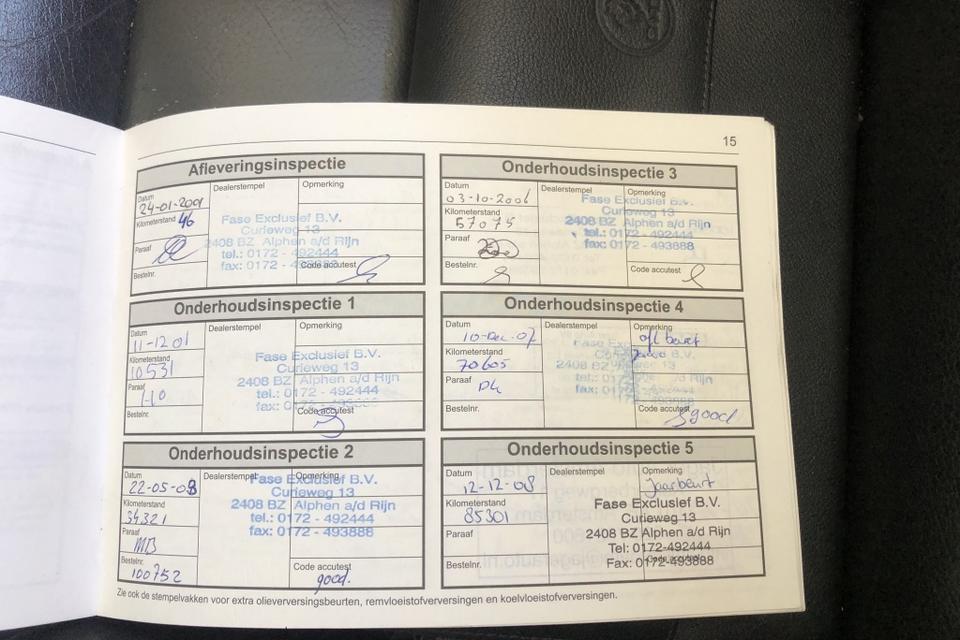 15
Afleveringsinspectie
Datum Dealerstempel Opmerking
24-01-2001
Kilometerstand 46
Fase Exclusief B.V.
Curieweg 13
2408 BZ Alphen a/d Rijn
tel.: 0172 - 492444
fax: 0172 - 493888
Paraaf
Bestelnr. Code accutest
Onderhoudsinspectie 1
Datum Dealerstempel Opmerking
11-12 01
Kilometerstand
10531
Fase Exclusief B.V.
Curieweg 13
2408 BZ Alphen a/d Rijn
tel.: 0172 - 492444
fax: 0172 - 493888
Paraaf
Bestelnr. Code accutest
Onderhoudsinspectie 2
Datum Dealerstempel Opmerking
22-05-03
Kilometerstand
34321
Fase Exclusief B.V.
Curieweg 13
2408 BZ Alphen a/d Rijn
tel.: 0172 - 492444
fax: 0172 - 493888
Paraaf
MB
Bestelnr. Code accutest
100752 good.
Onderhoudsinspectie 3
Datum Dealerstempel Opmerking
03-10-2006
Kilometerstand
57075
Fase Exclusief B.V.
Curieweg 13
2408 BZ Alphen a/d Rijn
tel.: 0172 - 492444
fax: 0172 - 493888
Paraaf
Bestelnr. Code accutest
Onderhoudsinspectie 4
Datum Dealerstempel Opmerking
10-Dec-07
Kilometerstand
70605
Paraaf
Bestelnr. Code accutest
good
Onderhoudsinspectie 5
Datum Dealerstempel Opmerking
12-12-08 Jaarbeurt
Kilometerstand
85301
Fase Exclusief B.V.
Curieweg 13
2408 BZ Alphen a/d Rijn
Tel: 0172-492444
Fax: 0172-493888
Paraaf
Bestelnr.
Zie ook de stempelvakken voor extra olieverversingsbeurten, remvloeistofverversingen en koelvloeistofverversingen.